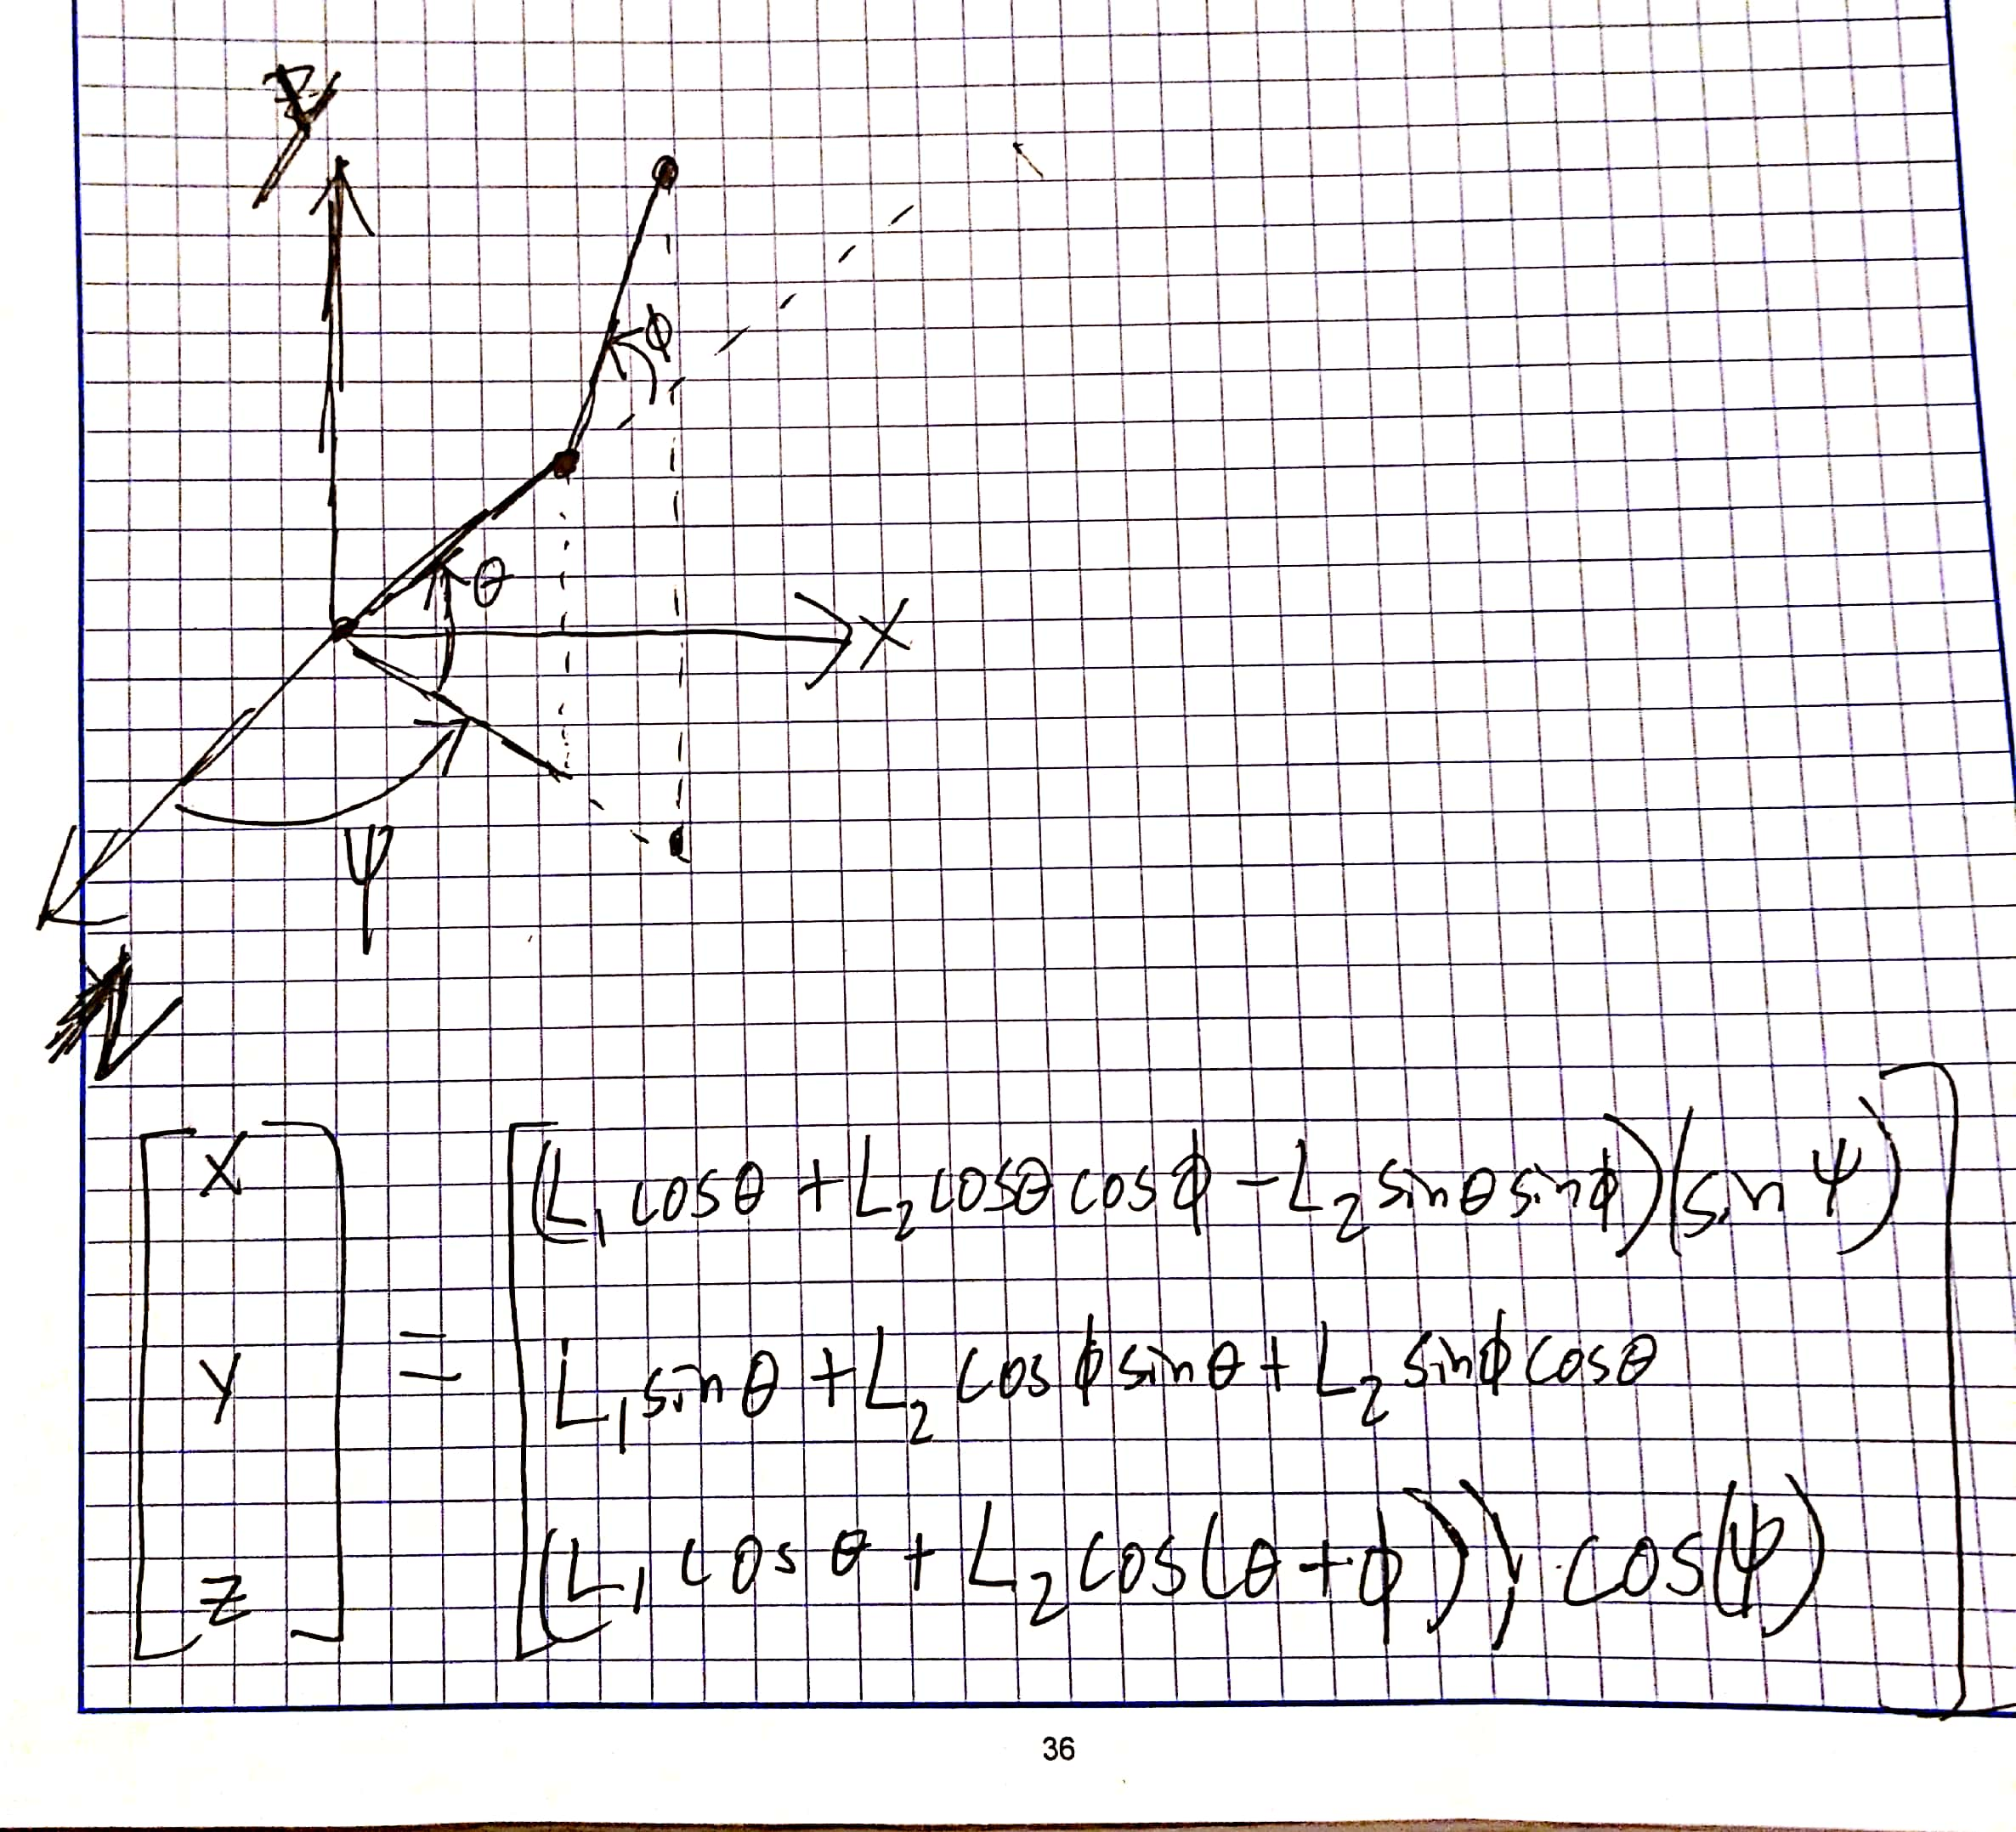 y
ϕ
θ
X
ψ
z
[X] = [(L₁ cosθ + L₂ cosθ cosϕ − L₂ sinθ sinϕ)(sin ψ)]
[y] [L₁ sinθ + L₂ cosϕ sinθ + L₂ sinϕ cosθ]
[z] [(L₁ cosθ + L₂ cos(θ+ϕ)) · cos(ψ)]
36